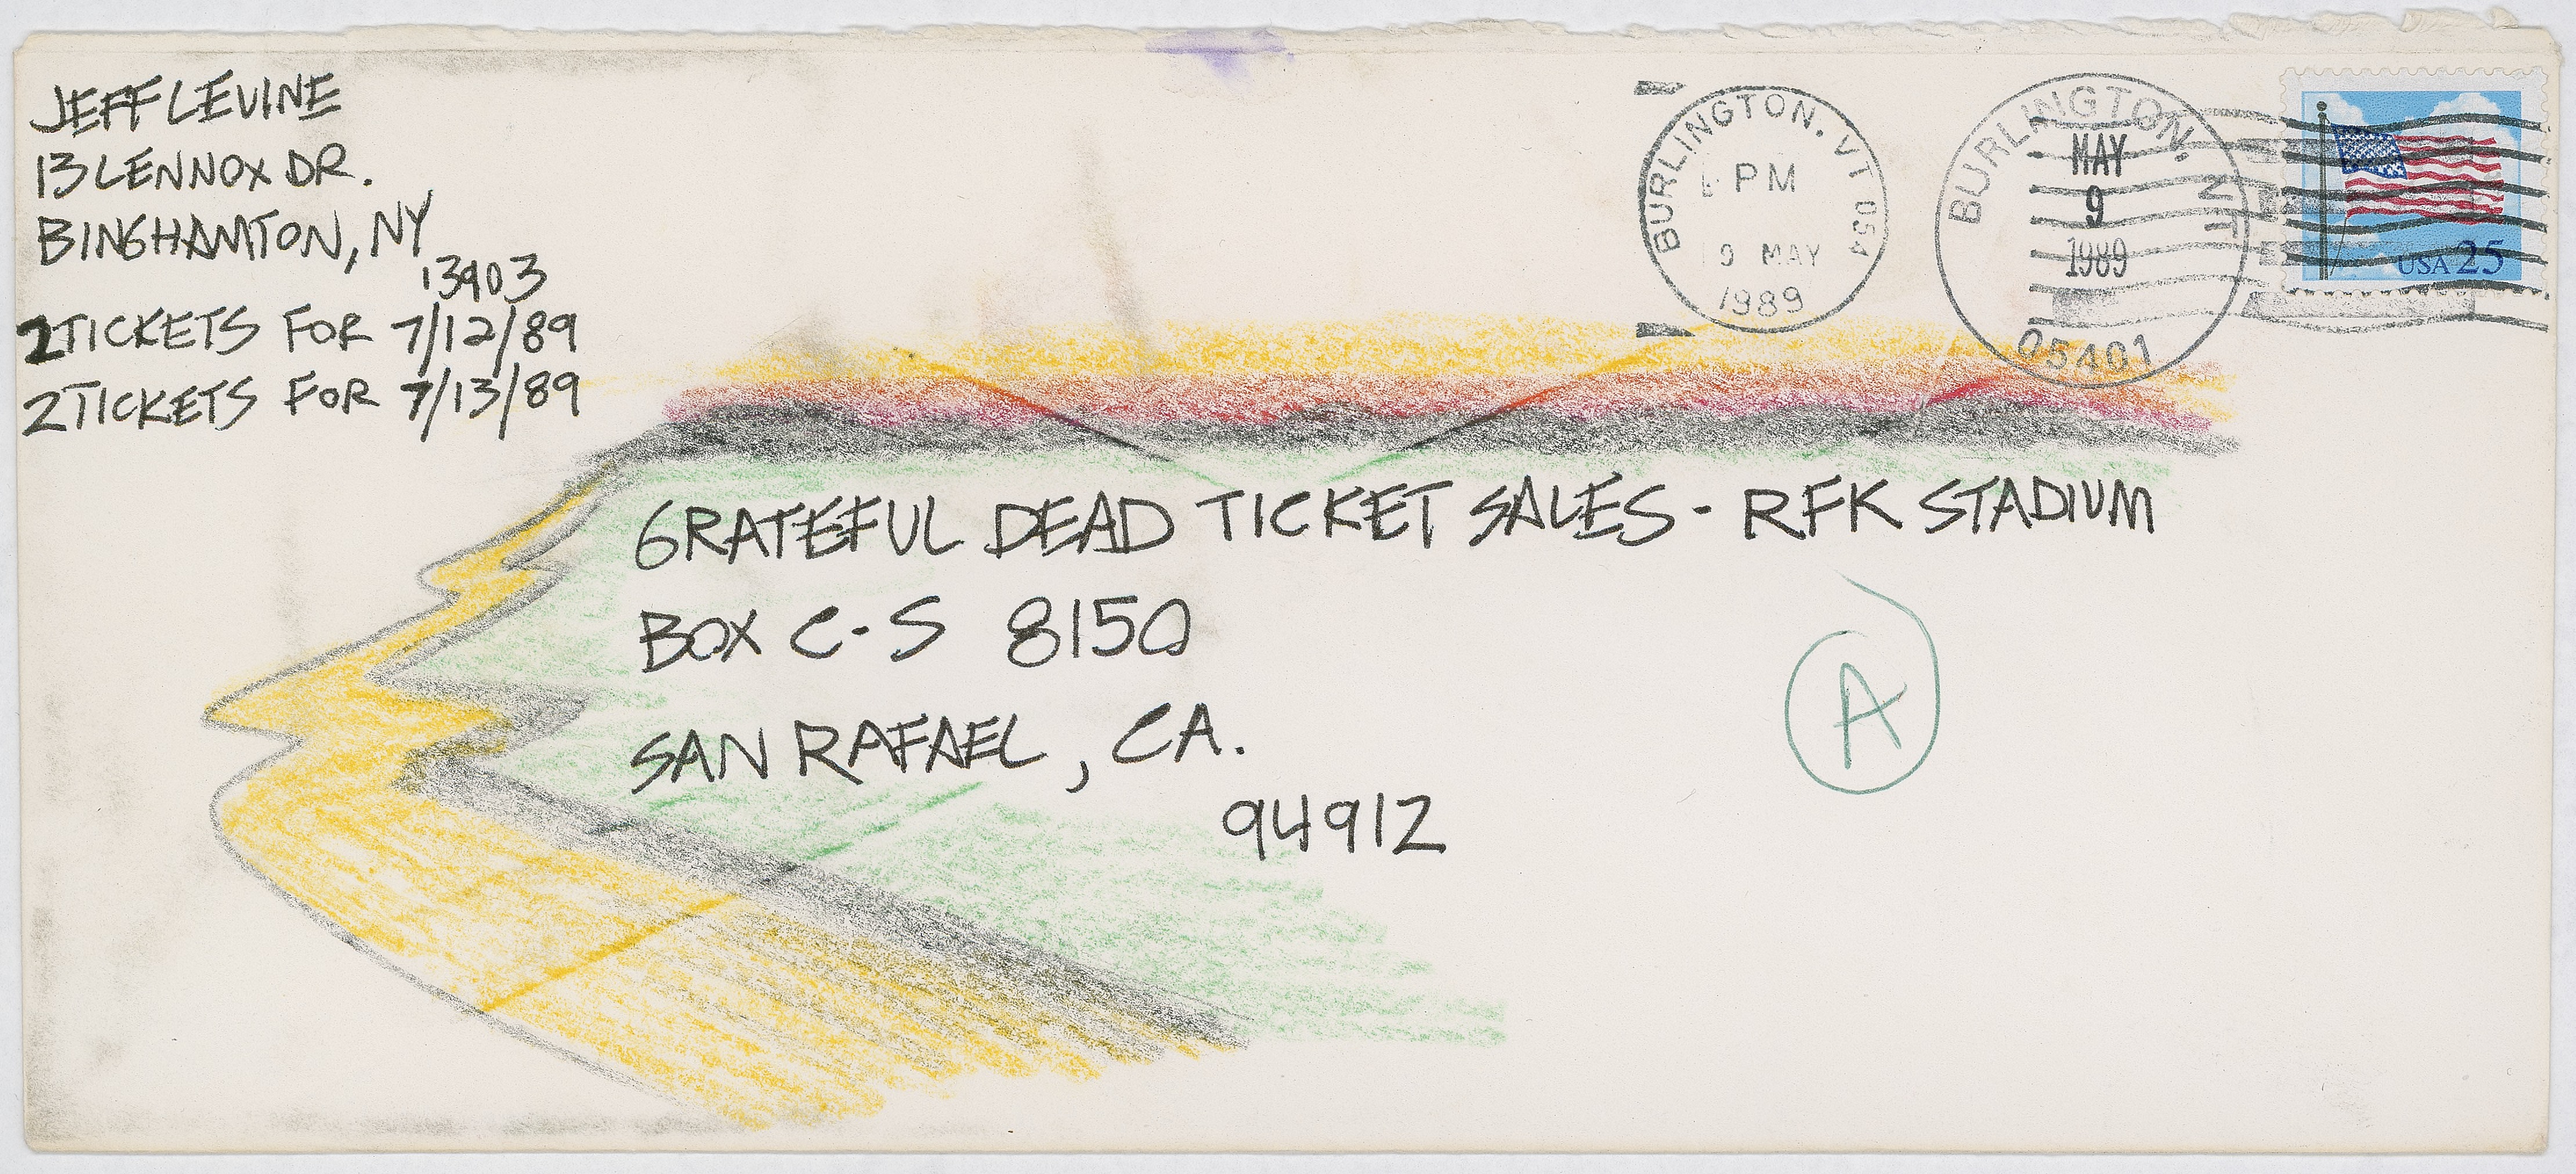 JEFF LEVINE
13 LENNOX DR.
BINGHAMTON, NY
13903
2 TICKETS FOR 7/12/89
2 TICKETS FOR 7/13/89
BURLINGTON, VT 054
PM
9 MAY
1989
BURLINGTON, VT
MAY
9
1989
05401
USA 25
GRATEFUL DEAD TICKET SALES - RFK STADIUM
BOX C-S 8150
SAN RAFAEL, CA.
94912
A